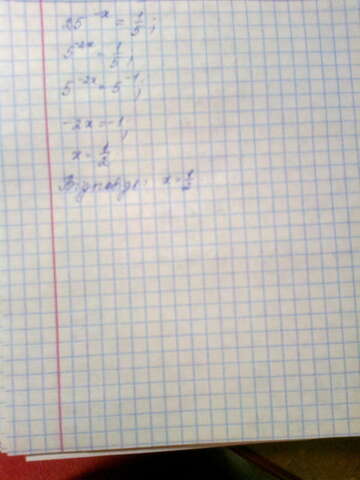 25^{-x} = \frac{1}{5};
5^{2x} = \frac{1}{5};
5^{-2x} = 5^{-1};
-2x = -1;
x = \frac{1}{2}
Відповідь: x = \frac{1}{2}